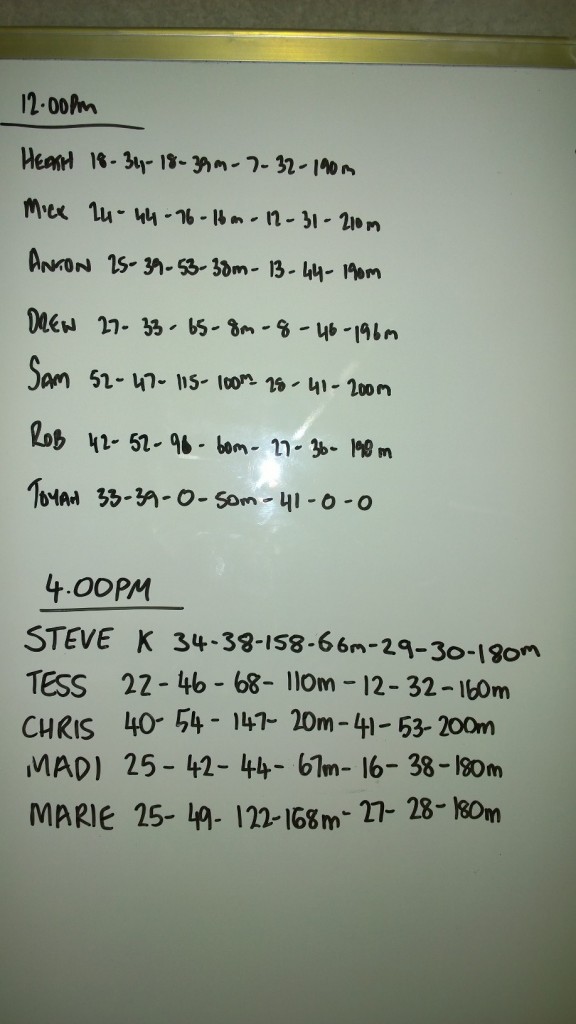 12.00pm
HEATH 18-34-18-39m-7-32-190m
Mick 24-44-76-16m-12-31-210m
ANTON 25-39-53-38m-13-44-190m
DREW 27-33-65-8m-8-46-196m
SAM 52-47-115-100m 28-41-200m
ROB 42-52-96-60m-27-36-190m
TOYAH 33-39-0-50m-41-0-0
4.00PM
STEVE K 34-38-158-66m-29-30-180m
TESS 22-46-68-110m-12-32-160m
CHRIS 40-54-147-20m-41-53-200m
MADI 25-42-44-67m-16-38-180m
MARIE 25-49-122-168m-27-28-180m